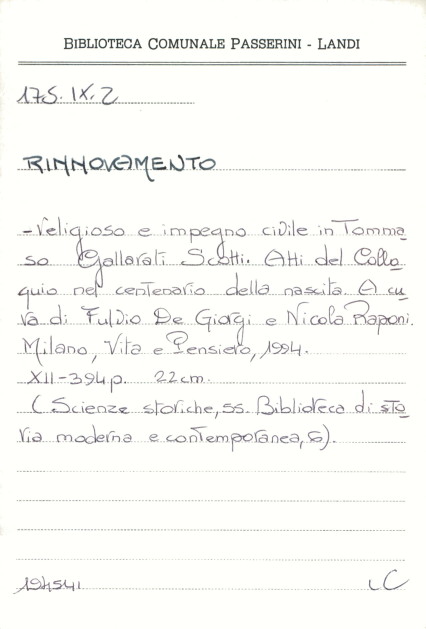 BIBLIOTECA COMUNALE PASSERINI - LANDI
175. IX. 2
RINNOVAMENTO
- religioso e impegno civile in Tomma
so Gallarati Scotti. Atti del Collo
quio nel centenario della nascita. A cu
ra di Fulvio De Giorgi e Nicola Raponi.
Milano, Vita e Pensiero, 1994.
XII-394 p. 22 cm.
(Scienze storiche, 55. Biblioteca di sto
ria moderna e contemporanea, 6).
194541